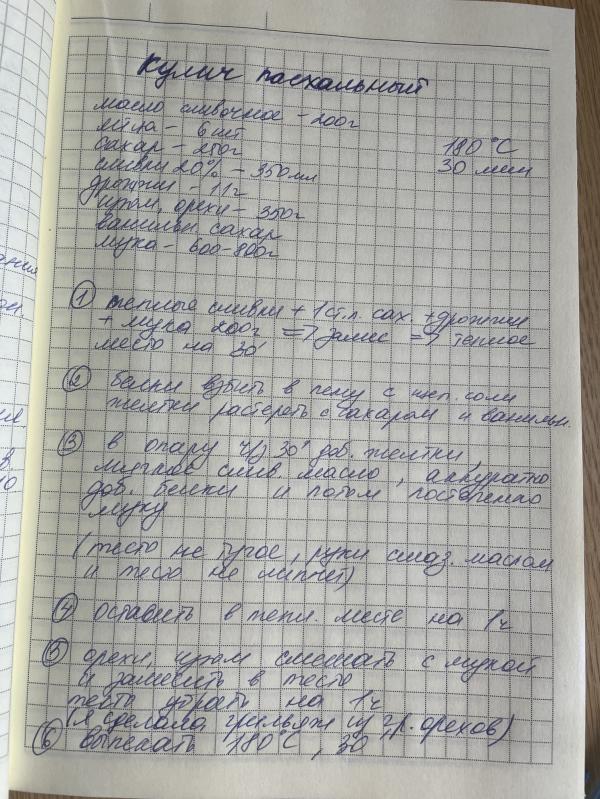 Кулич пасхальный
масло сливочное - 200г
яйца - 6 шт
сахар - 250г
180°C
сливки 20% - 350 мл
30 мин
дрожжи - 11г
изюм, орехи - 350г
ванильн. сахар
мука - 600-800г
① теплые сливки + 1 ст.л. сах. + дрожжи
+ мука 200г => замес => теплое
место на 30'
② белки взбить в пену с щеп. соли
желтки растереть с сахаром и ванильн.
③ в опару ч/з 30' доб. желтки,
мягкое слив. масло, аккуратно
доб. белки и потом постепенно
муку
(тесто не тугое, руки смаз. маслом
и тесто не липнет)
④ оставить в тепл. месте на 1ч
⑤ орехи, изюм смешать с мукой
и замесить в тесто
тесто убрать на 1ч
(я сделала грильяж из гр. орехов)
⑥ выпекать 180°C, 30'
ания
ия
в.
ю